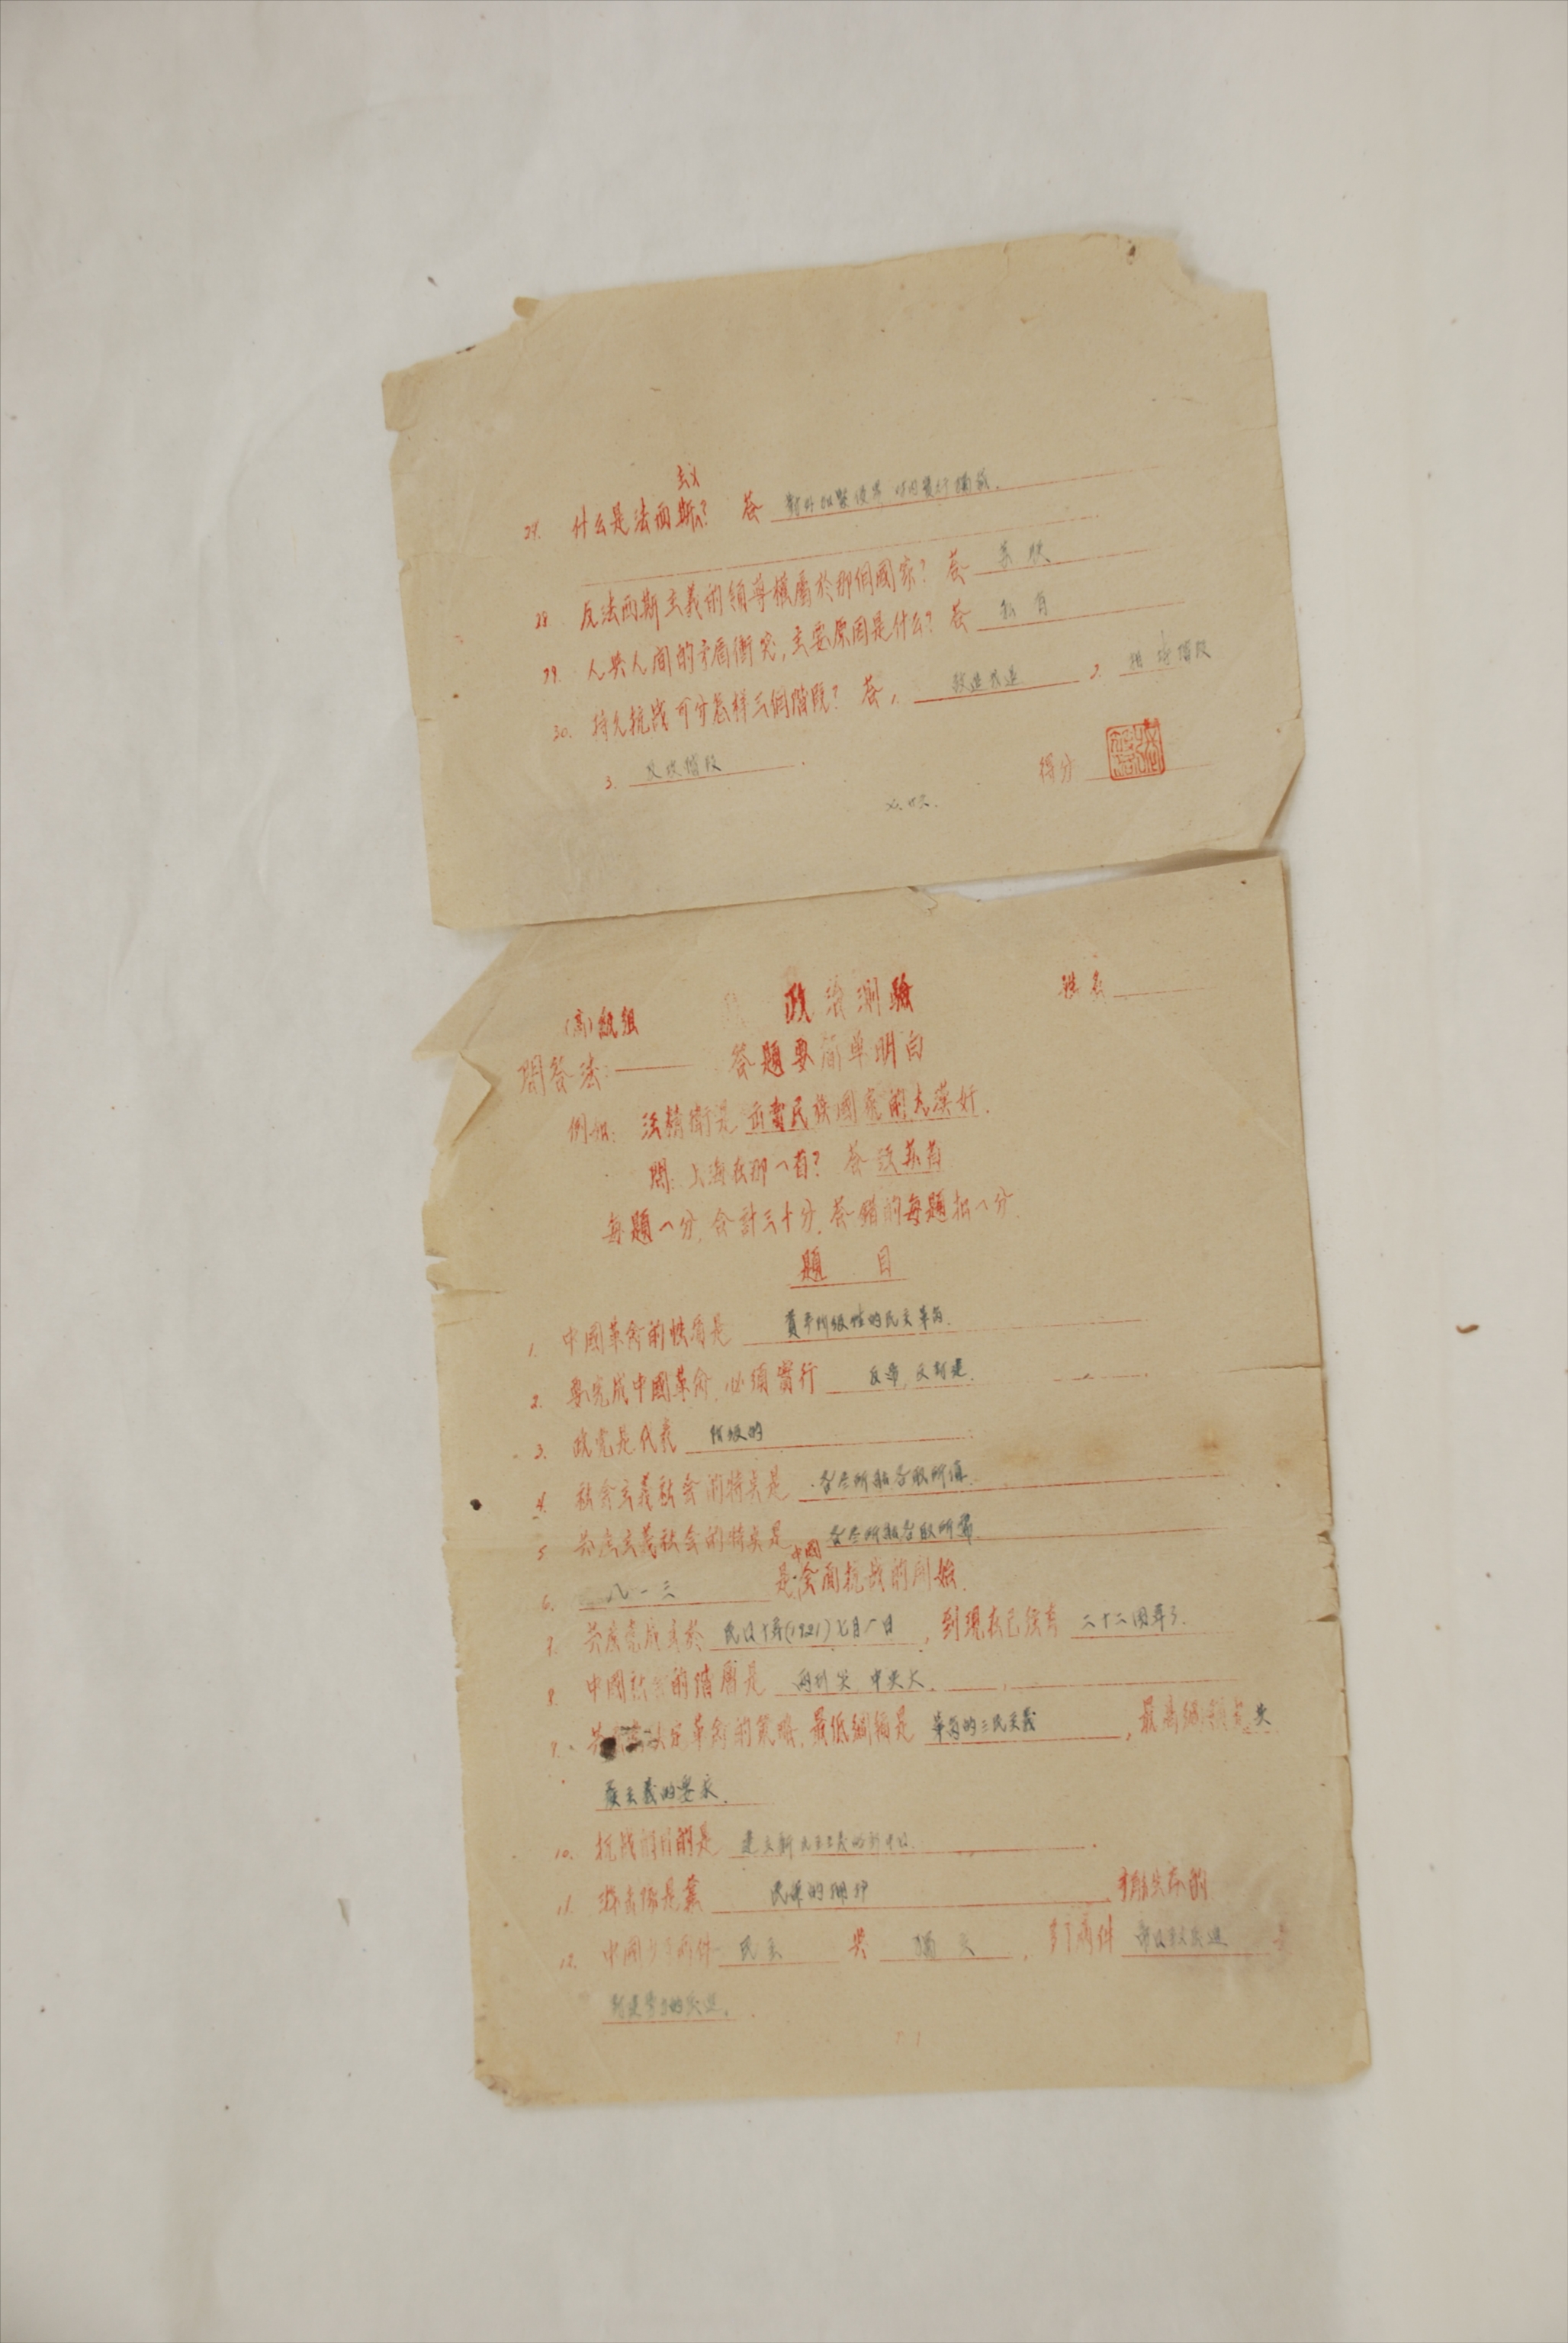 主义
27. 什么是法西斯? 答 對外加緊侵畧 对内实行獨裁.
28. 反法西斯主義的領导權屬於那個國家? 答 苏联
29. 人與人间的矛盾衝突,主要原因是什么? 答 私有
30. 持久抗战可分怎样三個階段? 答 1. 敌进我退 2. 相持階段
3. 反攻階段.
得分
(高)級組 政治測驗 姓名
問答法:—— 答題要简单明白
例如: 汪精衛是出賣民族國家的大漢奸.
問: 上海在那一省? 答 江苏省
每題一分, 合計三十分, 答錯的每題扣一分.
題 目
1. 中國革命的性質是 資產階级性的民主革命.
2. 要完成中國革命,必須實行 反帝,反封建.
3. 政党是代表 階級的
4. 社会主義社会的特点是 各尽所能各取所值.
5 共产主義社会的特点是 各尽所能各取所需.
6. 八一三 是中國全面抗战的開始.
7. 共产党成立於 民国十年(1921)七月一日, 到現在已经有 二十二周年了.
8. 中國社会的階層是 两头尖 中央大.
9. 革命的策略,最低綱領是 革命的三民主義, 最高綱領是共
産主義的要求.
10. 抗战的目的是 建立新民主主義的新中国.
11. 游击隊是靠 民众的拥护 才能生存的
12. 中國少了两件 民主 與 獨立, 多了两件
封建势力的压迫.